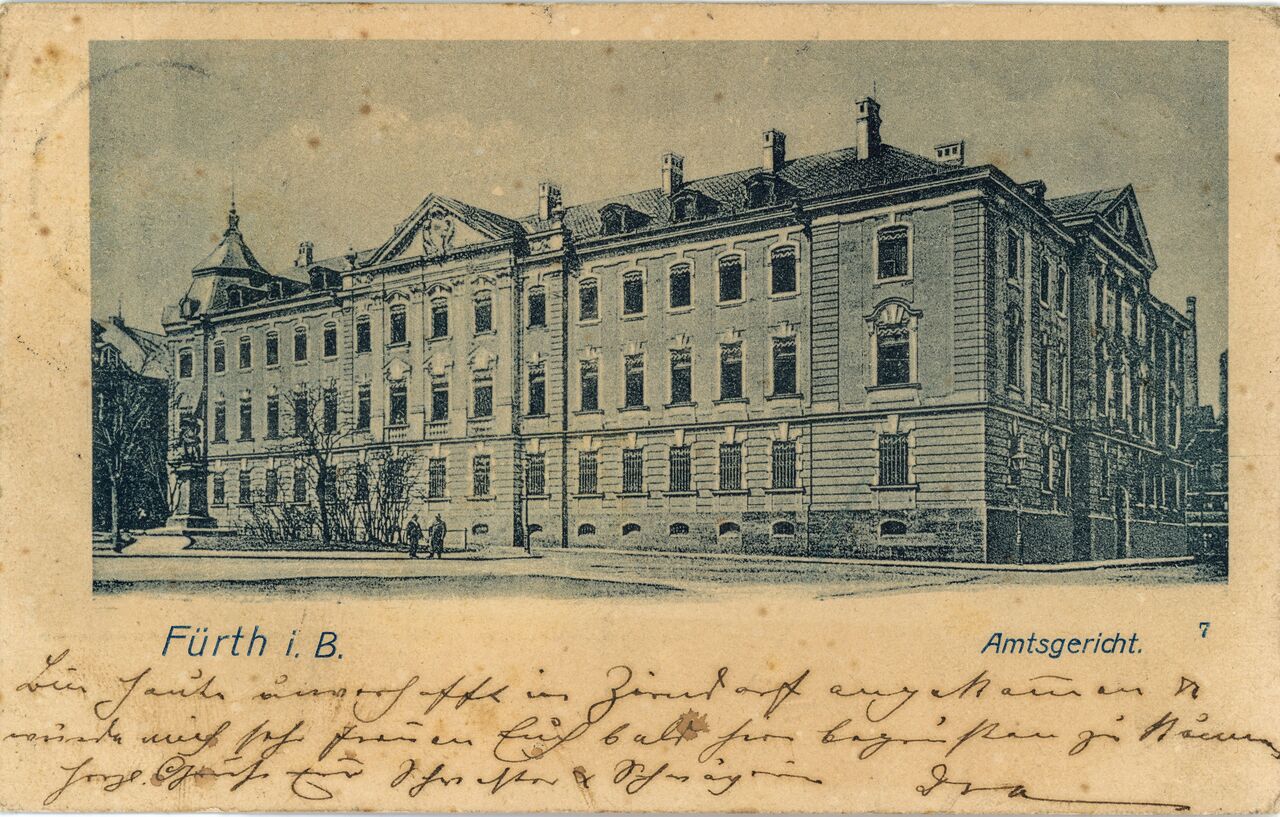 Fürth i. B.
Amtsgericht.
7
Bin heute unverhofft in Zirndorf angekommen &
würde mich sehr freuen Euch bald hier begrüßen zu können
herzl. Grüße Schwester & Schwägerin